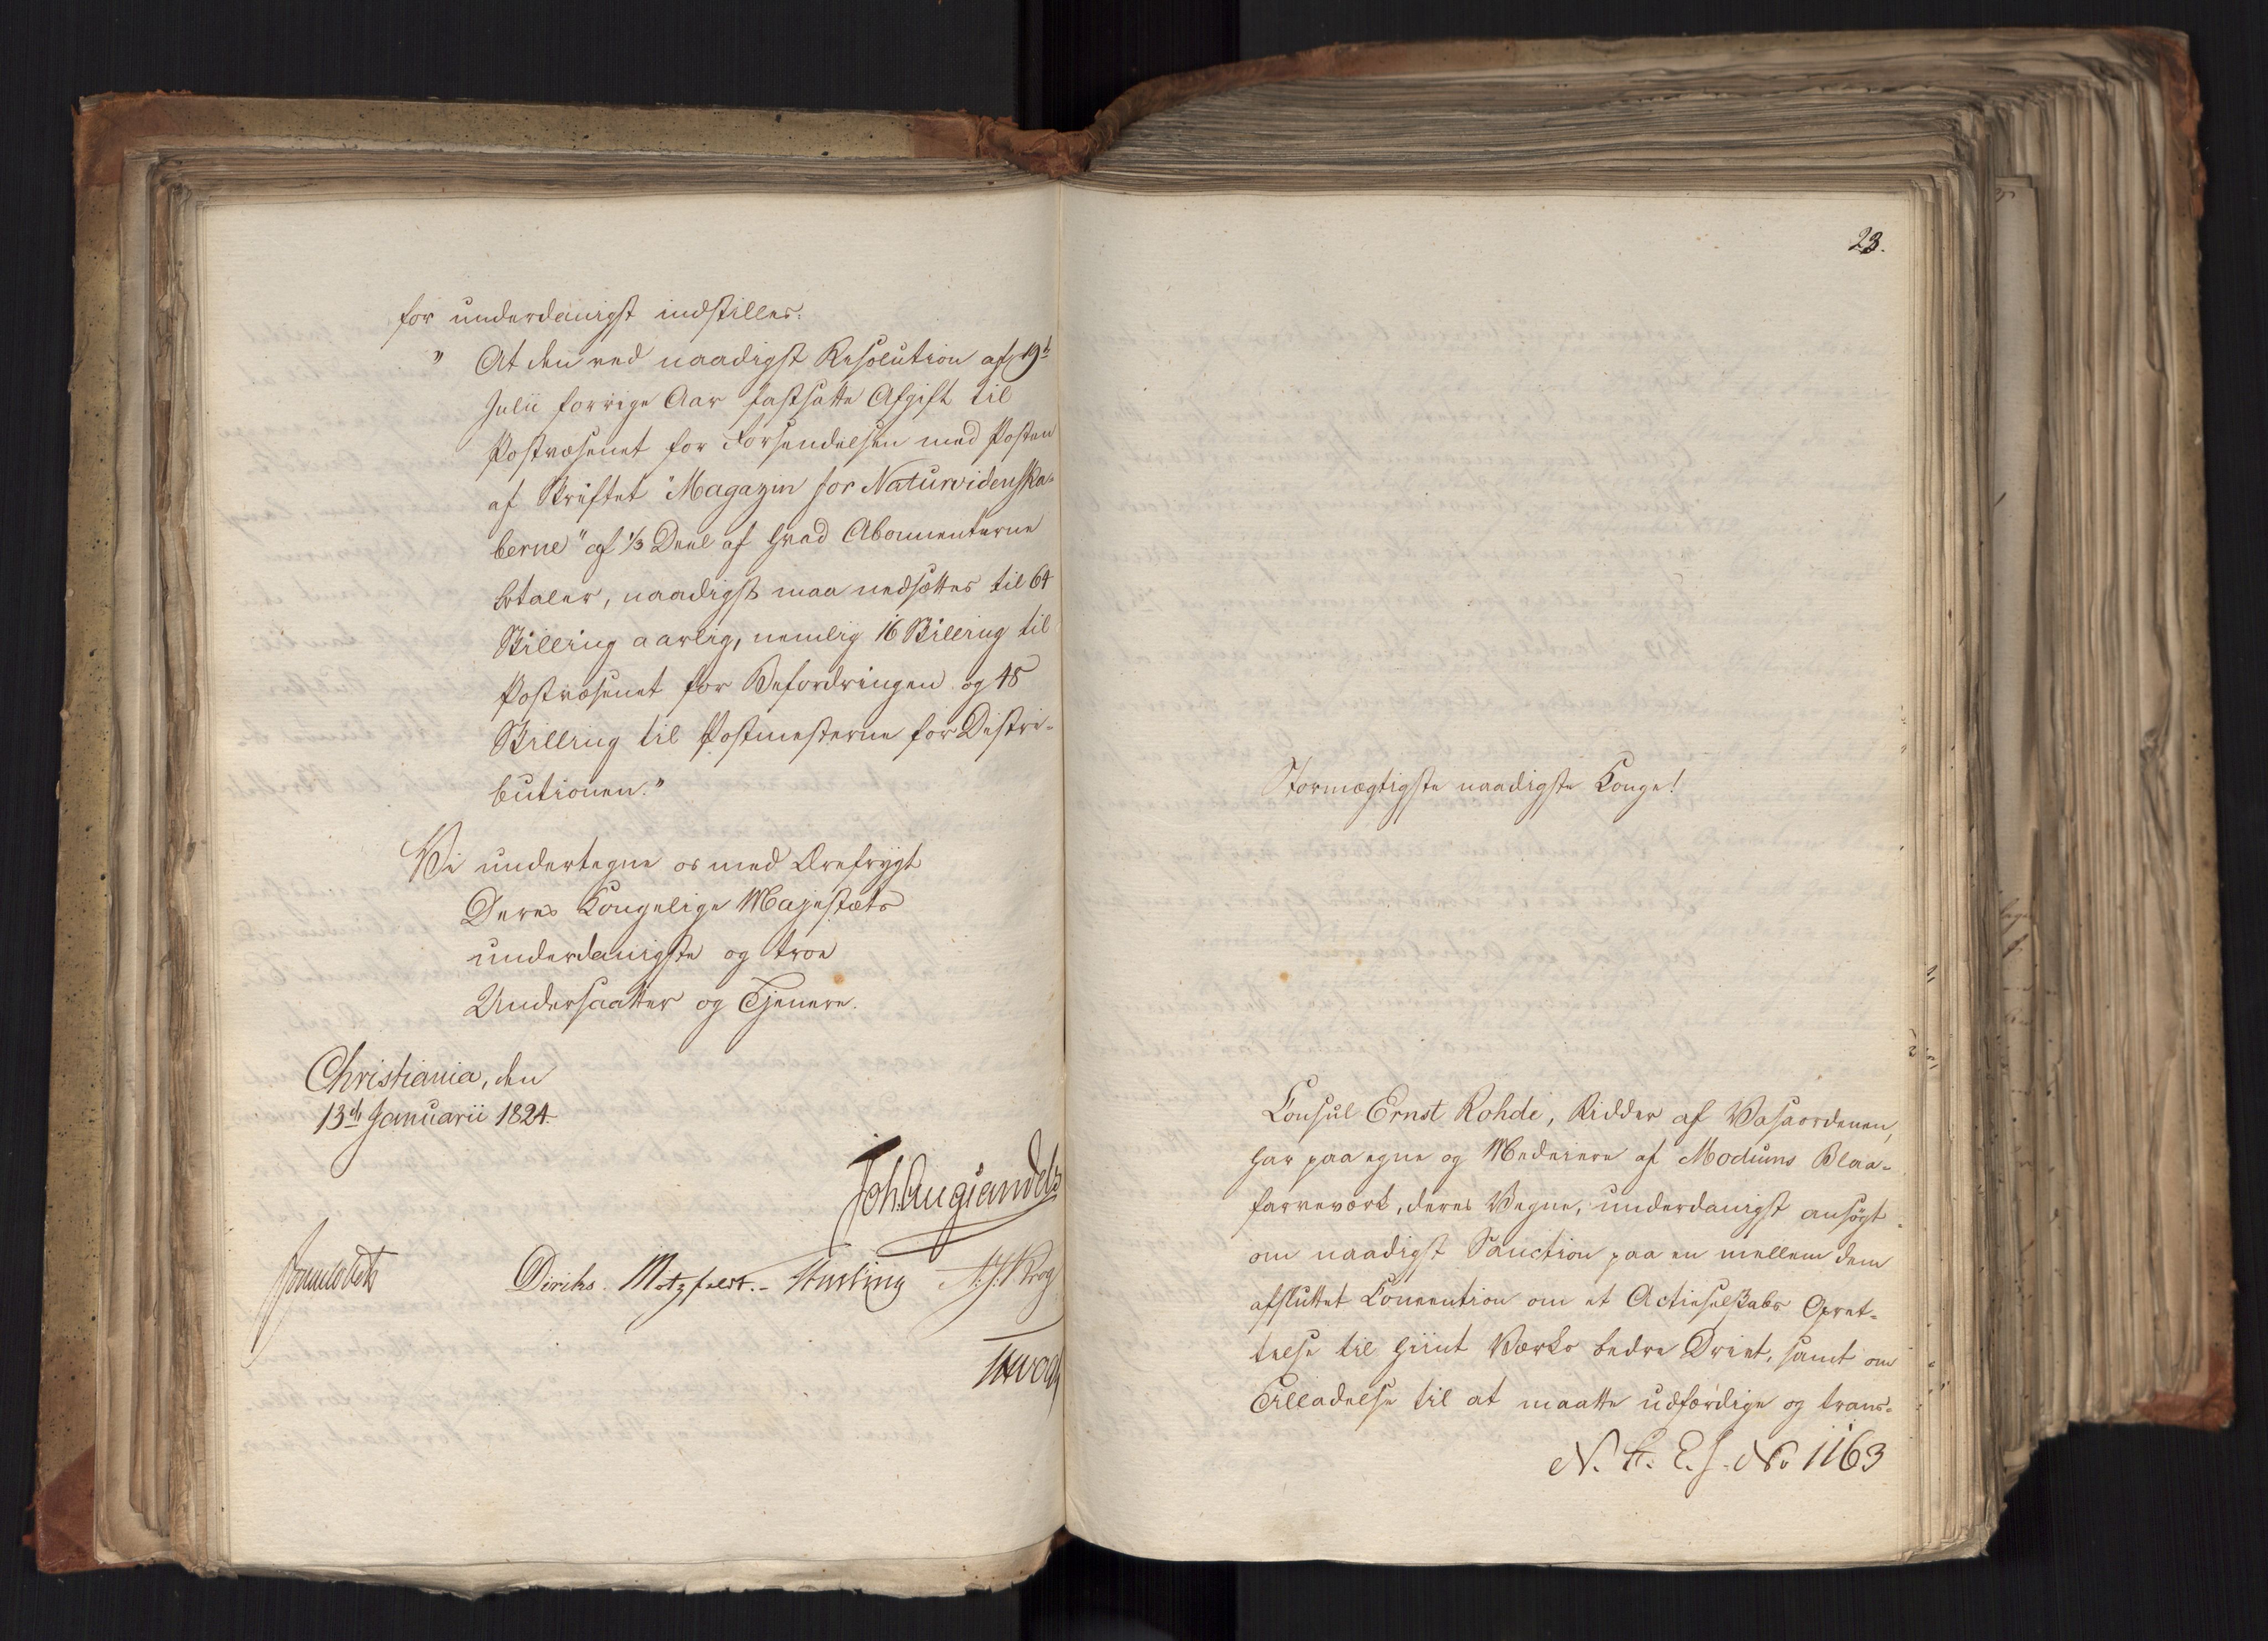 for underdanigst indstilles:
" At den ved naadigst Resolution af 19d
Julii forrige Aar fastsatte Afgift til
Postvæsenet for Forsendelsen med Posten
af Skriftet "Magazin for Naturvidenska-
berne" af 1/3 Deel af hvad Abonnenterne
betaler, naadigst maa nedsættes til 64
Skilling aarlig, nemlig 16 Skilling til
Postvæsenet for Befordringen og 48
Skilling til Postmesterne for Distri-
butionen."
Vi undertegne os med Ærefrygt
Deres Kongelige Majestæts
underdanigste og troe
Undersaatter og Tjenere.
Christiania, den
13de Januarii 1824.
Joh: Aug: Sandels
Sommerhielm Diriks. Motzfeldt.- Collett
23.
Stormægtigste naadigste Konge!
Consul Ernst Rohde, Ridder af Vasaordenen,
har paa egne og Medeiere af Modums Blaa-
farveværk, deres Vegne, underdanigst ansøgt
om naadigst Sanction paa en mellem dem
afsluttet Convention om et Actieselskabs Opret-
telse til hiint Værks bedre Drivt, samt om
Tilladelse til at maatte udfærdige og trans-
No 1163